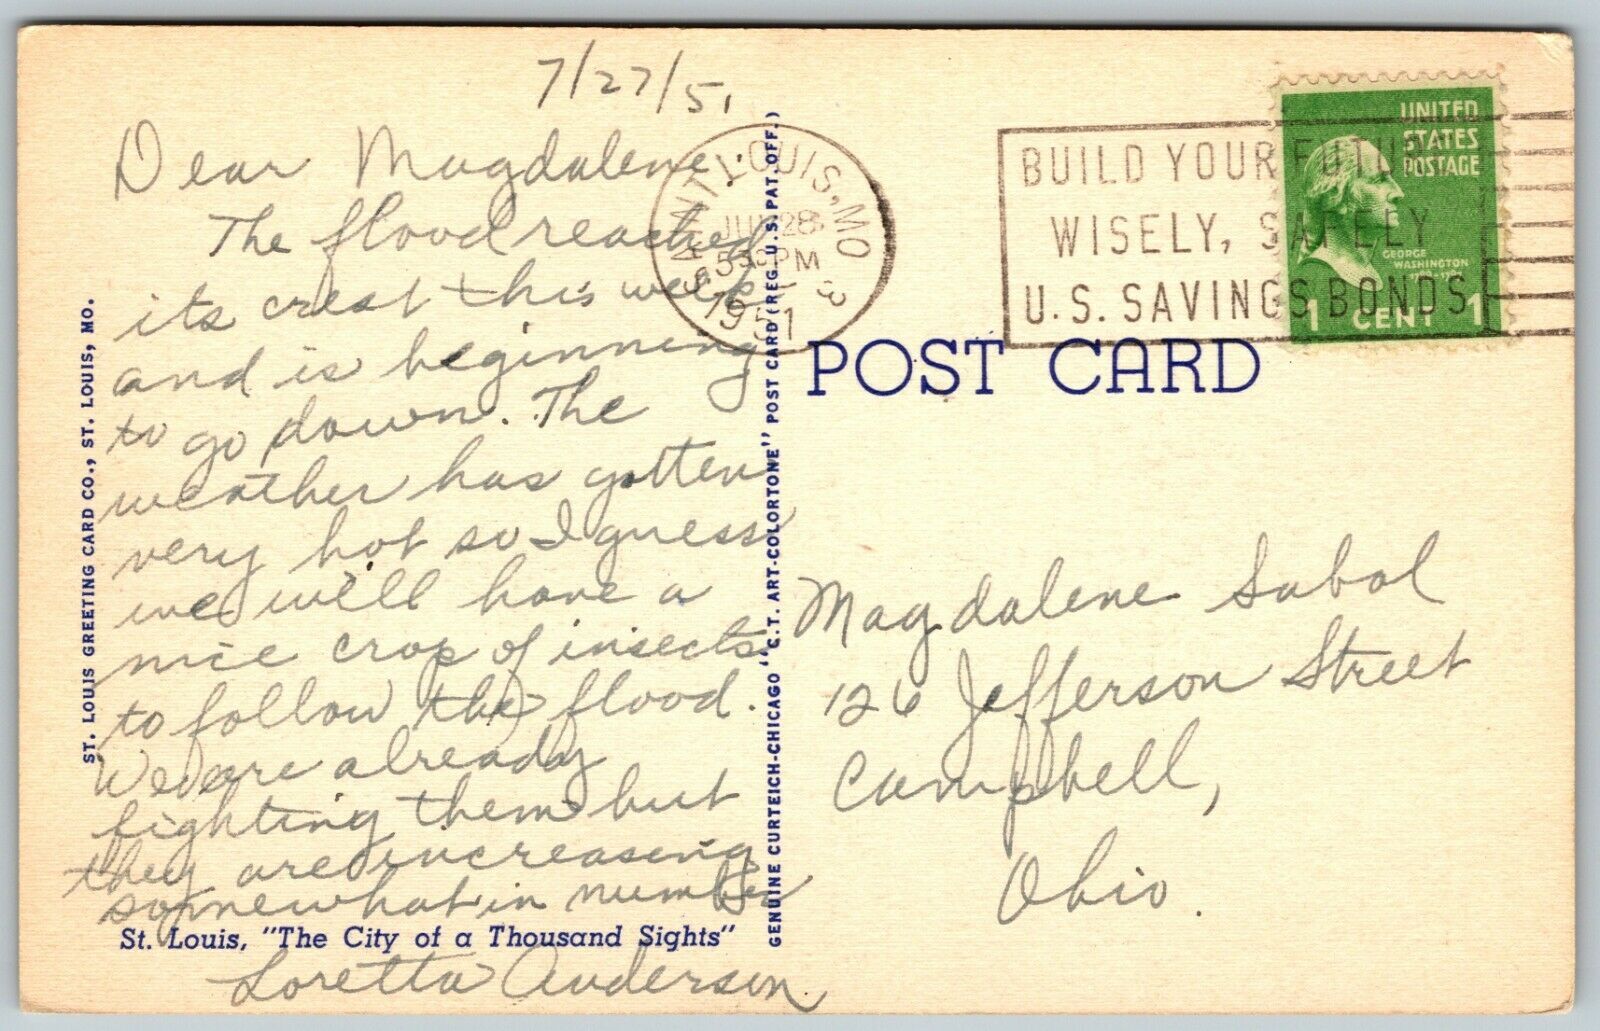 7/27/51
Dear Magdalene:
The flood reached
its crest this week
and is beginning
to go down. The
weather has gotten
very hot so I guess
we will have a
nice crop of insects
to follow the flood.
We are already
fighting them but
they are increasing
somewhat in number
Loretta Anderson
St. Louis, "The City of a Thousand Sights"
ST. LOUIS GREETING CARD CO., ST. LOUIS, MO.
GENUINE CURTEICH-CHICAGO "C.T. ART-COLORTONE" POST CARD (REG. U.S. PAT. OFF.)
SAINT LOUIS, MO. 3
JUL 28
530 PM
1951
BUILD YOUR FUTURE
WISELY, SAFELY
U.S. SAVINGS BONDS
UNITED
STATES
POSTAGE
GEORGE
WASHINGTON
1 CENT 1
POST CARD
Magdalene Sabol
126 Jefferson Street
Campbell,
Ohio.